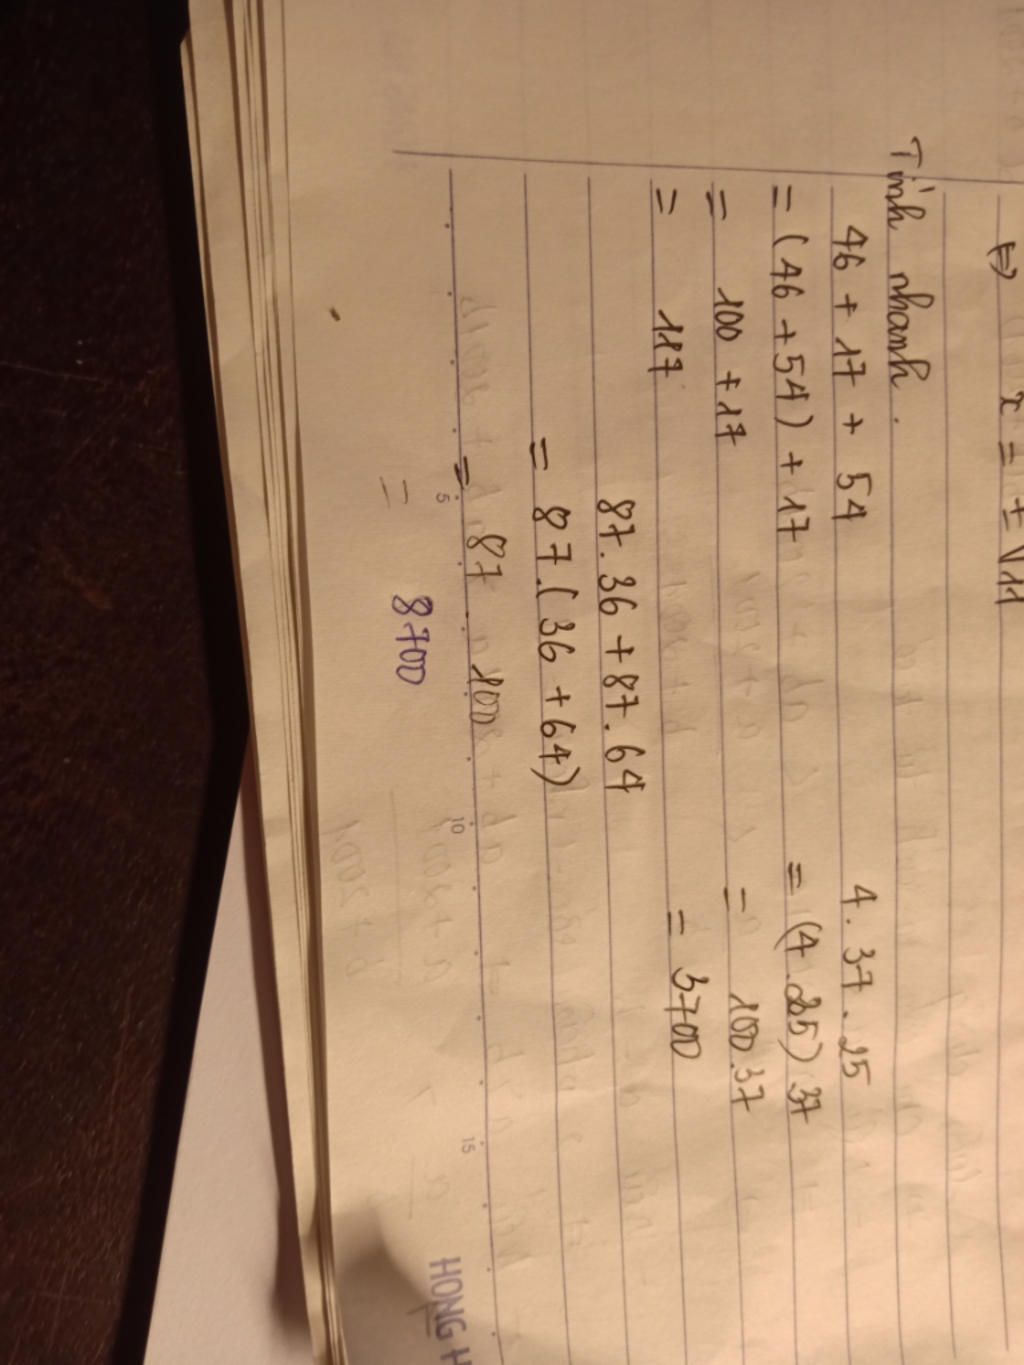 ⇔ x = ± √11
Tính nhanh.
46 + 17 + 54
= (46 + 54) + 17
= 100 + 17
= 117
4 . 37 . 25
= (4 . 25) 37
= 100 . 37
= 3700
87 . 36 + 87 . 64
= 87 . (36 + 64)
= 87 . 100
= 8700
5 10 15
HONG H